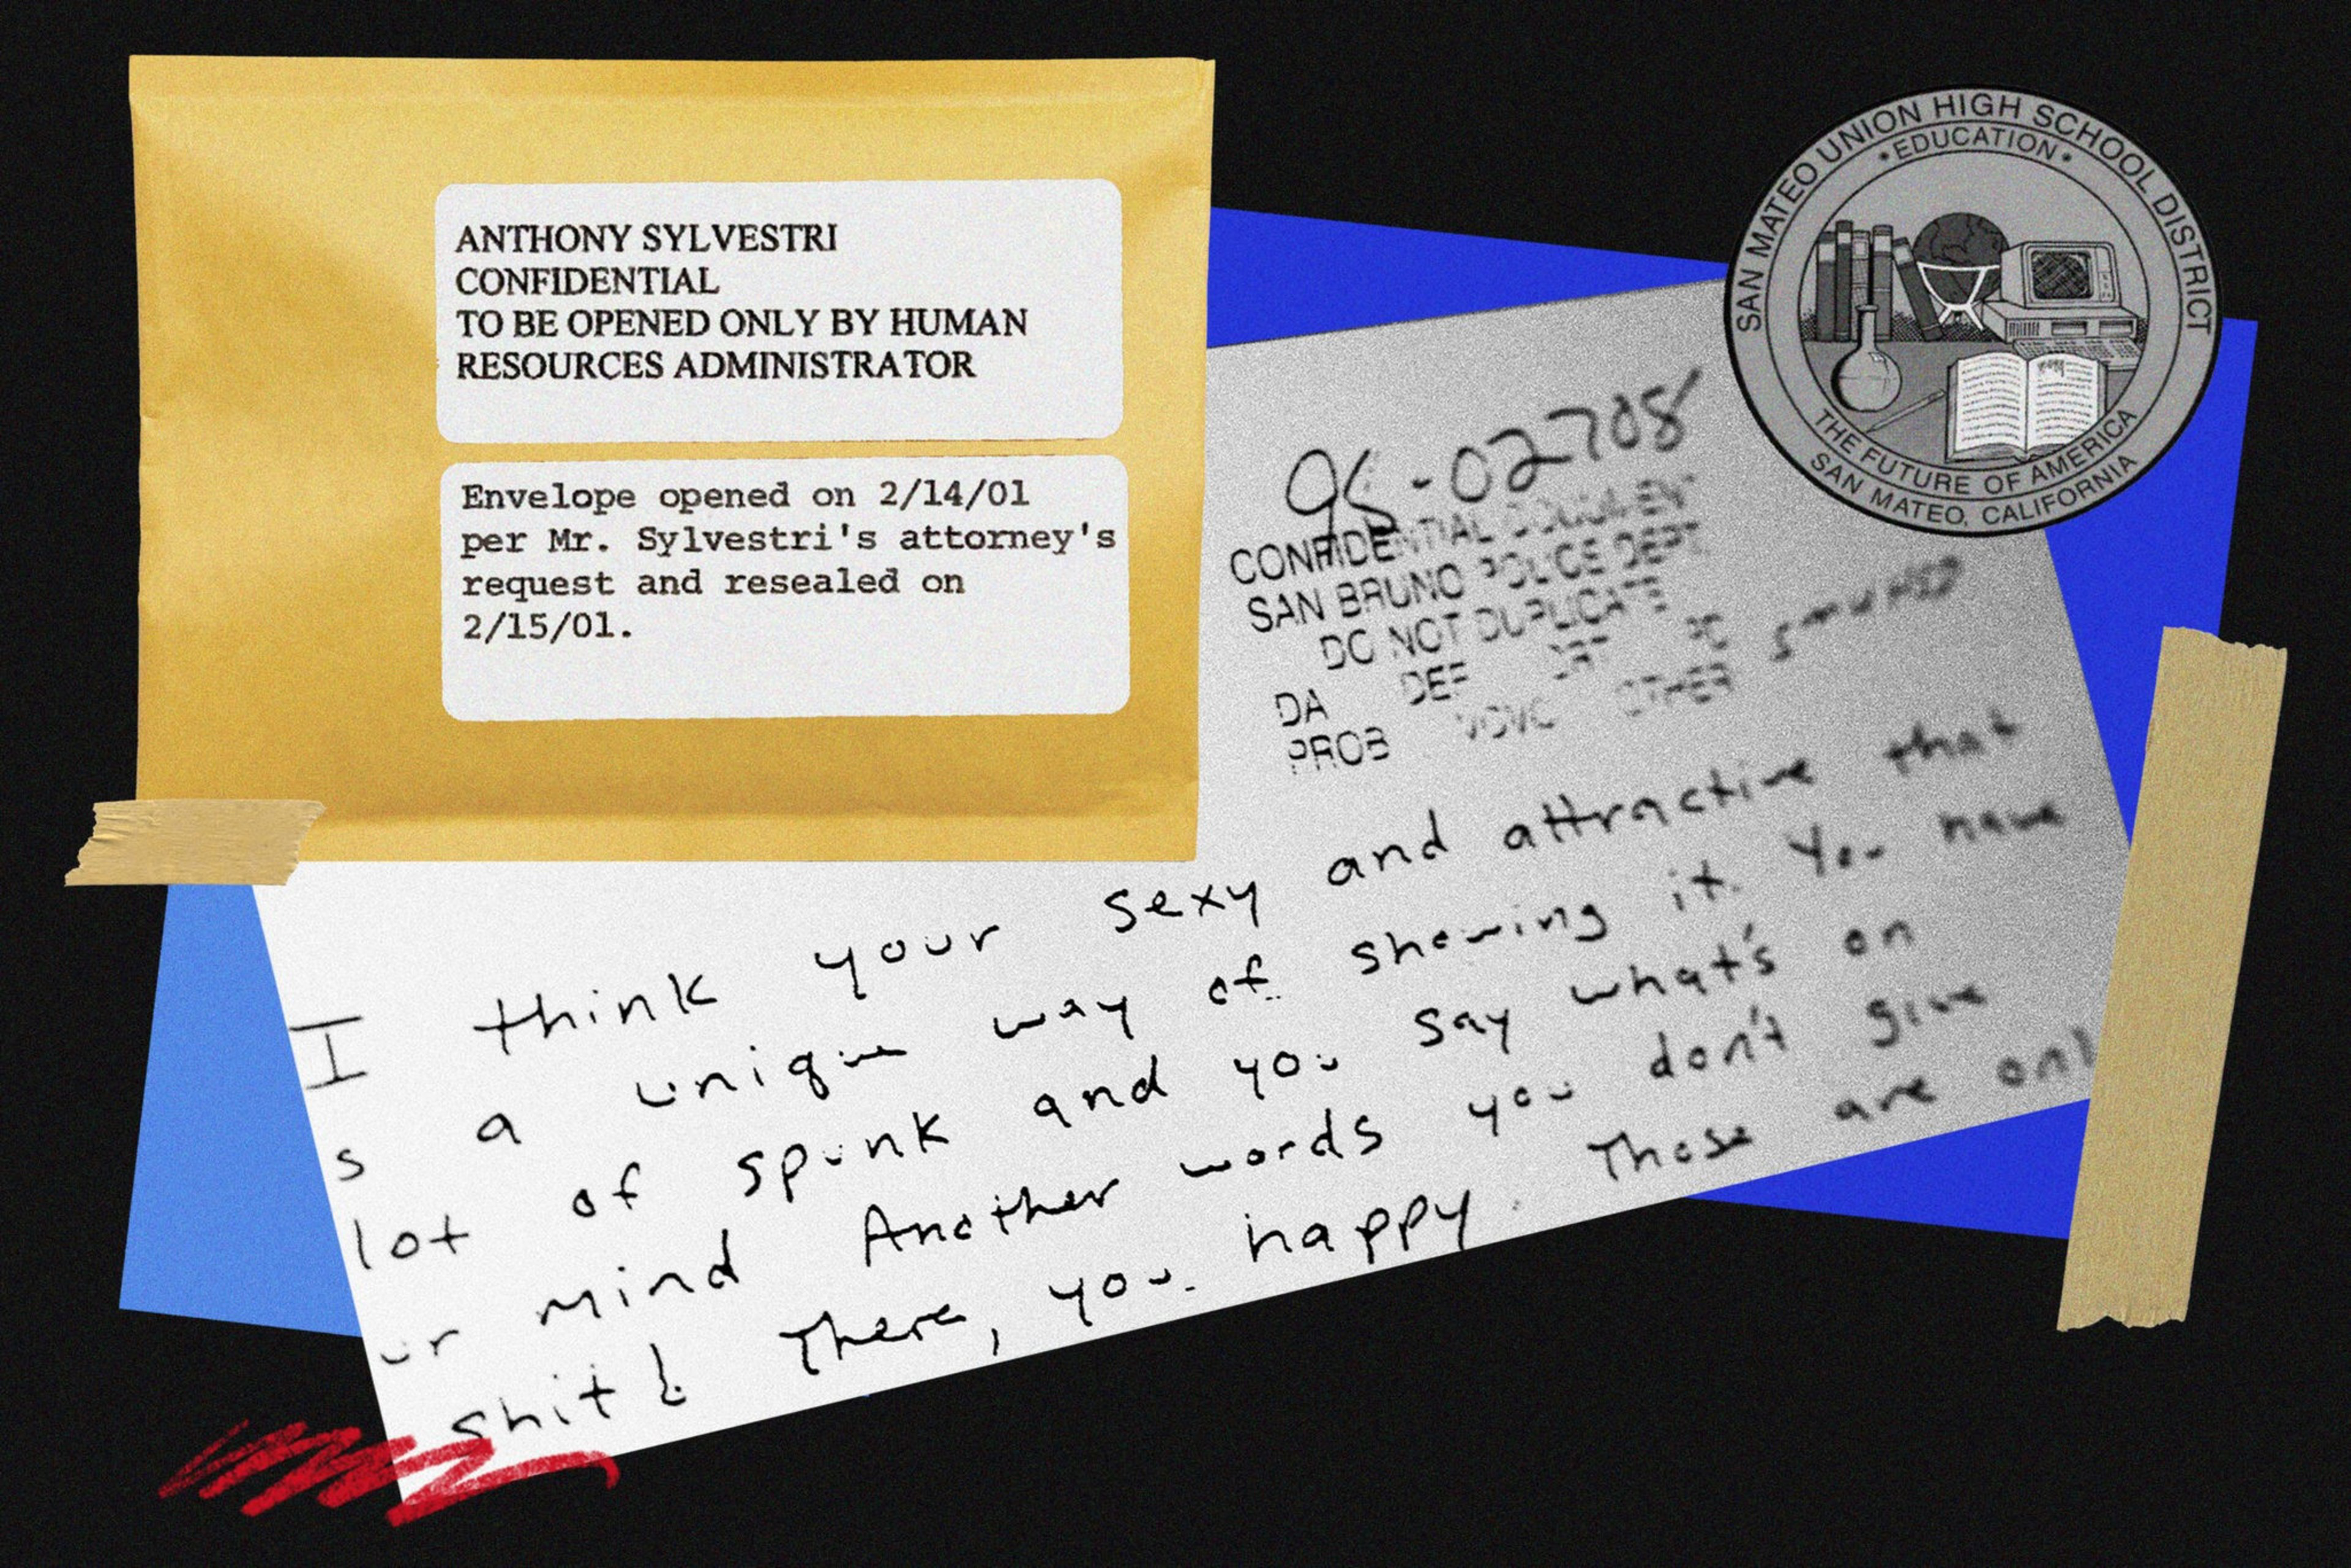 ANTHONY SYLVESTRI
CONFIDENTIAL
TO BE OPENED ONLY BY HUMAN
RESOURCES ADMINISTRATOR
Envelope opened on 2/14/01
per Mr. Sylvestri's attorney's
request and resealed on
2/15/01.
SAN MATEO UNION HIGH SCHOOL DISTRICT
•EDUCATION•
THE FUTURE OF AMERICA
SAN MATEO, CALIFORNIA
-02708
CONFIDENTIAL DOCUMENT
SAN BRUNO POLICE DEPT.
DO NOT DUPLICATE
DA DEF
PROB OTHER
I think your sexy and attractive that
s a unique way of showing it. You have
lot of spunk and you say what's on
ur mind Another words you don't give
shit! There, you happy. These are onl